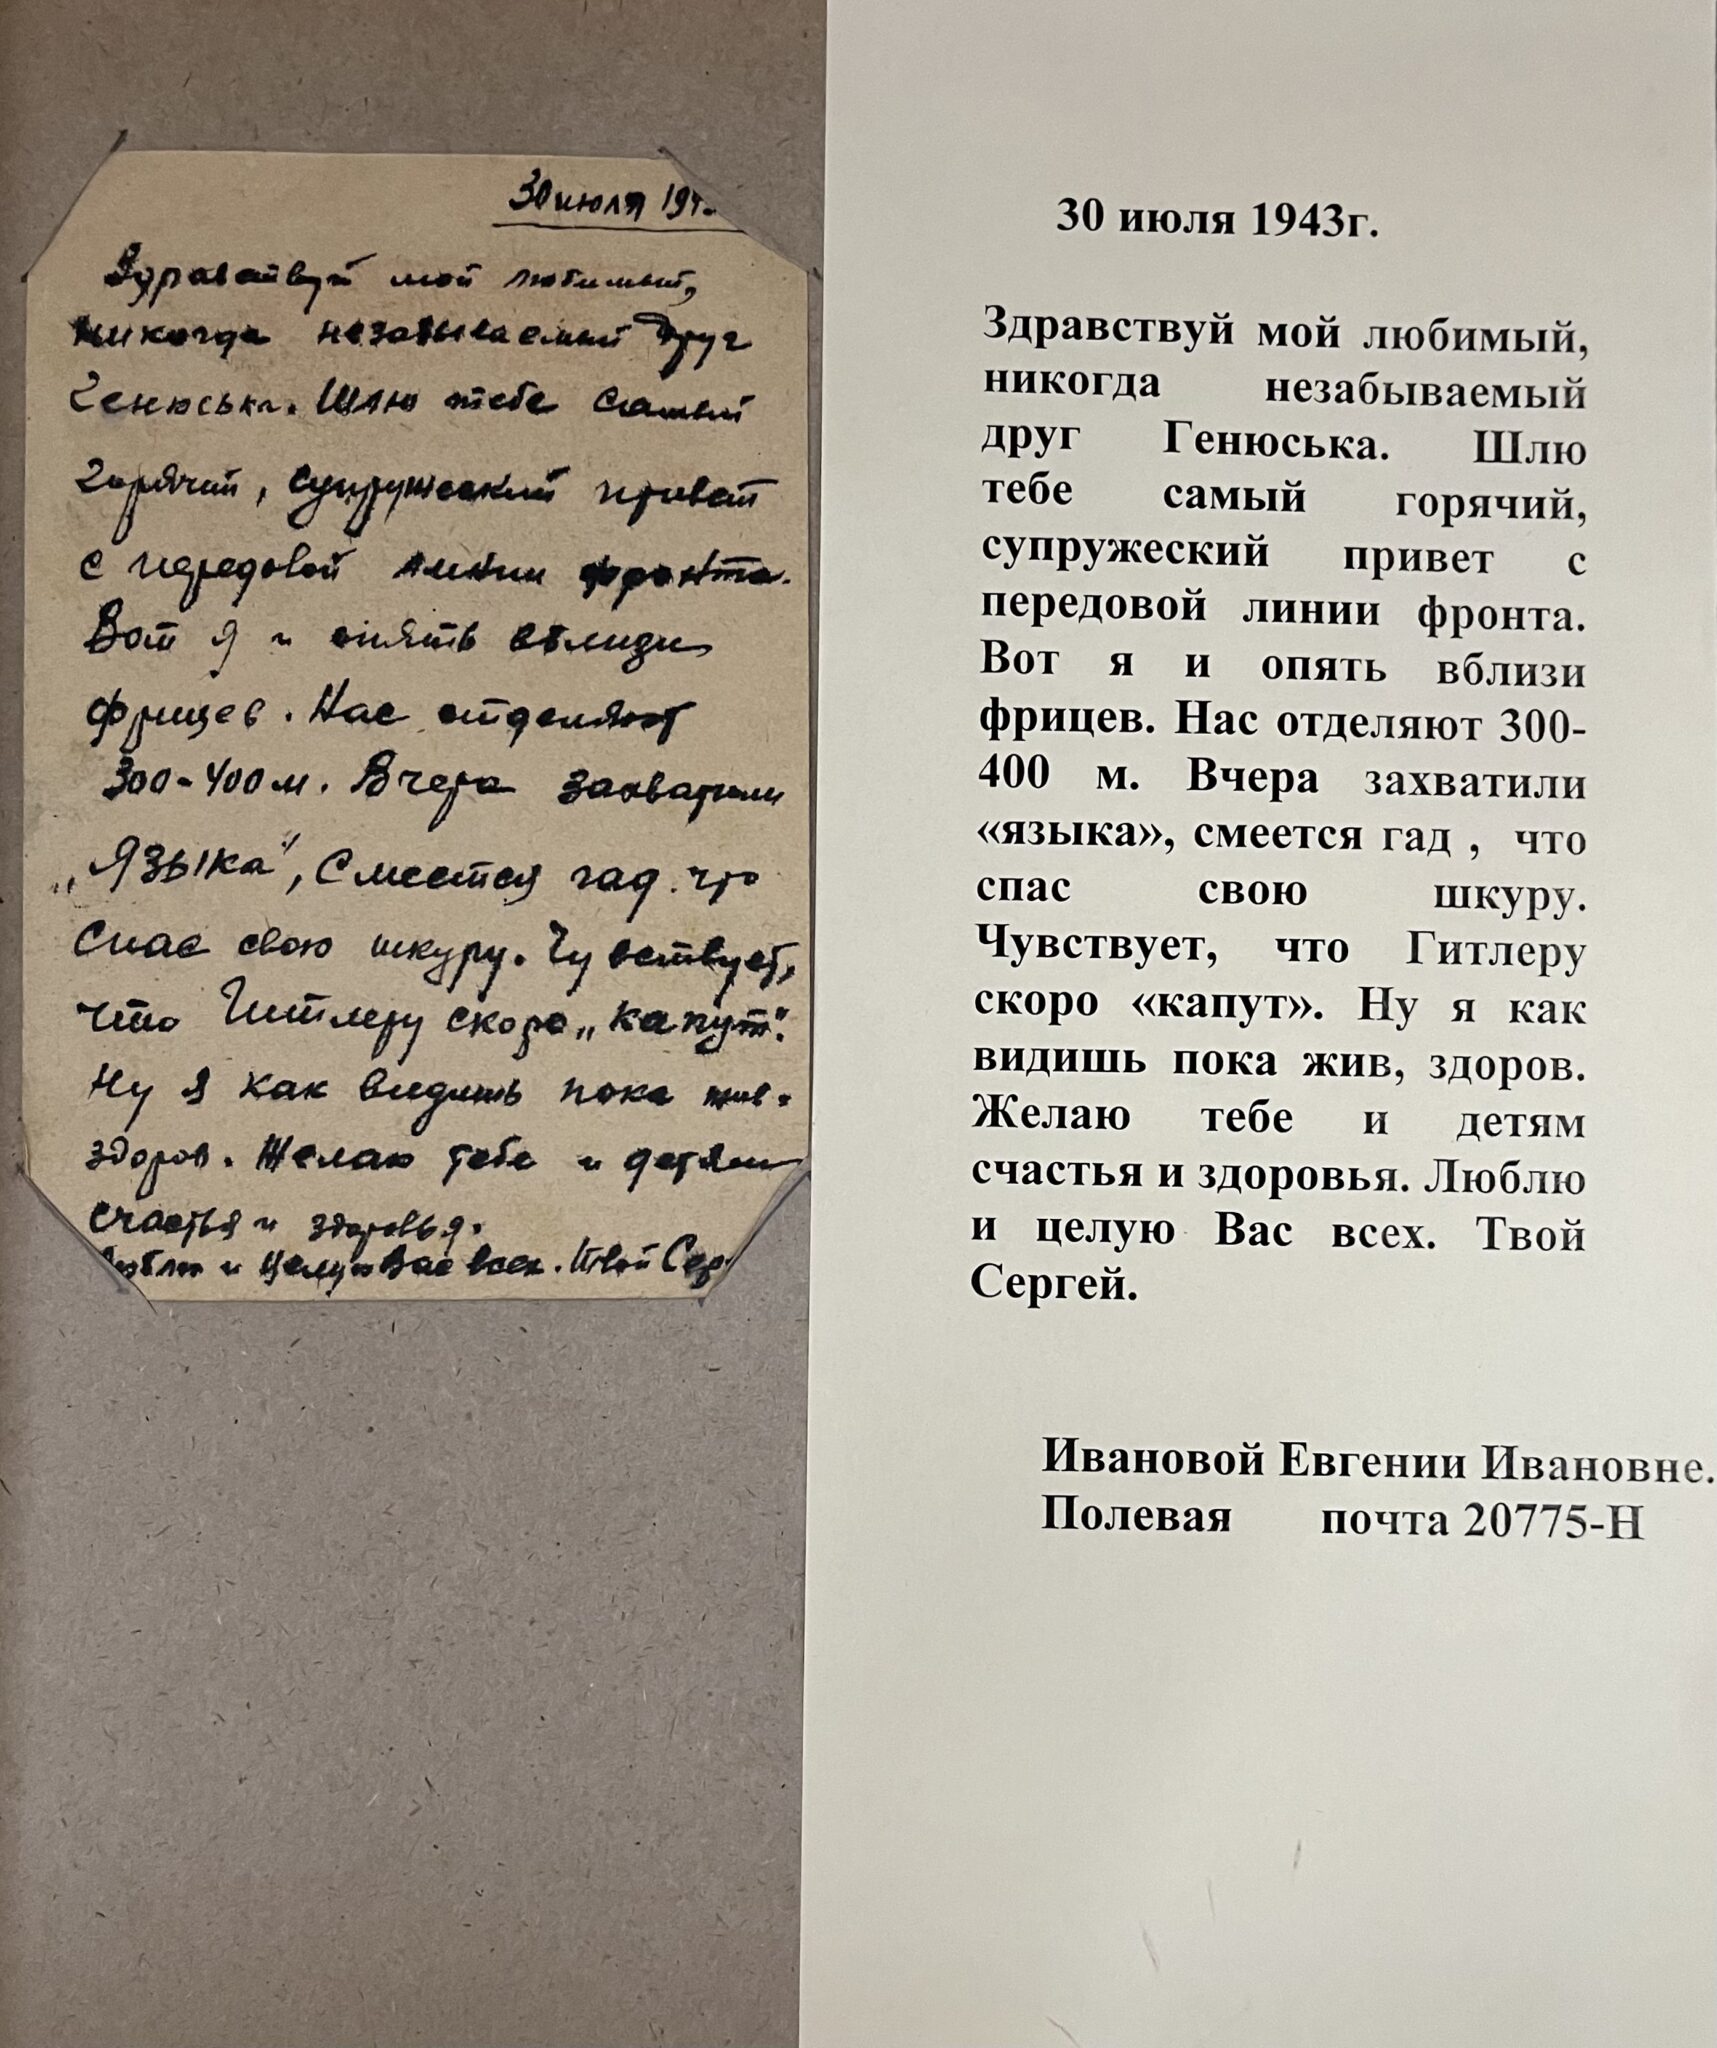 30 июля 19
Здравствуй мой любимый,
никогда незабываемый друг
Генюська. Шлю тебе самый
горячий, супружеский привет
с передовой линии фронта.
Вот я и опять вблизи
фрицев. Нас отделяют
300-400 м. Вчера захватили
„Языка", Смеется гад. что
Спас свою шкуру. Чувствует,
что Гитлеру скоро „капут".
Ну я как видишь пока жив.
здоров. Желаю тебе и детям
счастья и здоровья.
Люблю и целую Вас всех. Твой Сер
30 июля 1943г.
Здравствуй мой любимый,
никогда незабываемый
друг Генюська. Шлю
тебе самый горячий,
супружеский привет с
передовой линии фронта.
Вот я и опять вблизи
фрицев. Нас отделяют 300-
400 м. Вчера захватили
«языка», смеется гад , что
спас свою шкуру.
Чувствует, что Гитлеру
скоро «капут». Ну я как
видишь пока жив, здоров.
Желаю тебе и детям
счастья и здоровья. Люблю
и целую Вас всех. Твой
Сергей.
Ивановой Евгении Ивановне.
Полевая почта 20775-Н